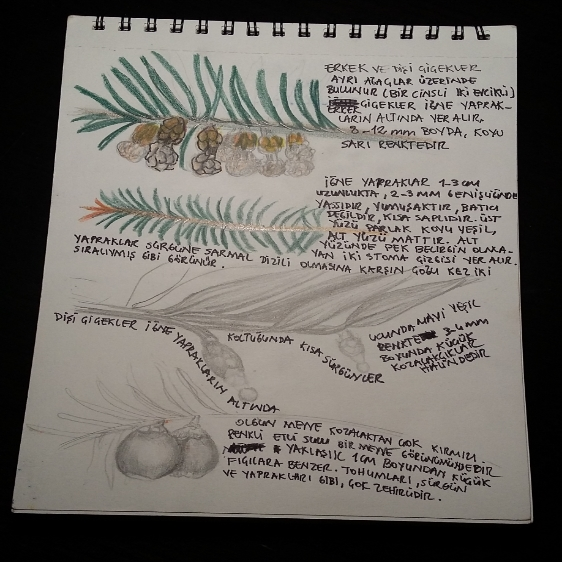 ERKEK VE DİŞİ ÇİÇEKLER
AYRI AĞAÇLAR ÜZERİNDE
BULUNUR (BİR CİNSLİ İKİ EVCİKLİ)
ERKEK ÇİÇEKLER İĞNE YAPRAK-
LARIN ALTINDA YER ALIR,
8-12 mm BOYDA, KOYU
SARI RENKTEDİR
İĞNE YAPRAKLAR 1-3 cm
UZUNLUKTA, 2-3 MM GENİŞLİĞİNDE
YASSIDIR, YUMUŞAKTIR, BATICI
DEĞİLDİR, KISA SAPLIDIR. ÜST
YÜZÜ PARLAK KOYU YEŞİL,
ALT YÜZÜ MATTIR. ALT
YÜZÜNDE PEK BELİRGİN OLMA-
YAN İKİ STOMA ÇİZGİSİ YER ALIR.
YAPRAKLAR SÜRGÜNE SARMAL DİZİLİ OLMASINA KARŞIN ÇOĞU KEZ İKİ
SIRALIYMIŞ GİBİ GÖRÜNÜR.
DİŞİ ÇİÇEKLER İĞNE YAPRAKLARIN ALTINDA
KOLTUĞUNDA KISA SÜRGÜNLER
UCUNDA MAVİ YEŞİL
RENKTE 3-4 mm
BOYUNDA KÜÇÜK
KOZALAKÇIKLAR
HALİNDEDİR
OLGUN MEYVE KOZALAKTAN ÇOK KIRMIZI
RENKLİ ETLİ SULU BİR MEYVE GÖRÜNÜMÜNDEDİR
YAKLAŞIK 1 cm BOYUNDAN KÜÇÜK
FIÇILARA BENZER. TOHUMLARI, SÜRGÜN
VE YAPRAKLARI GİBİ, ÇOK ZEHİRLİDİR.